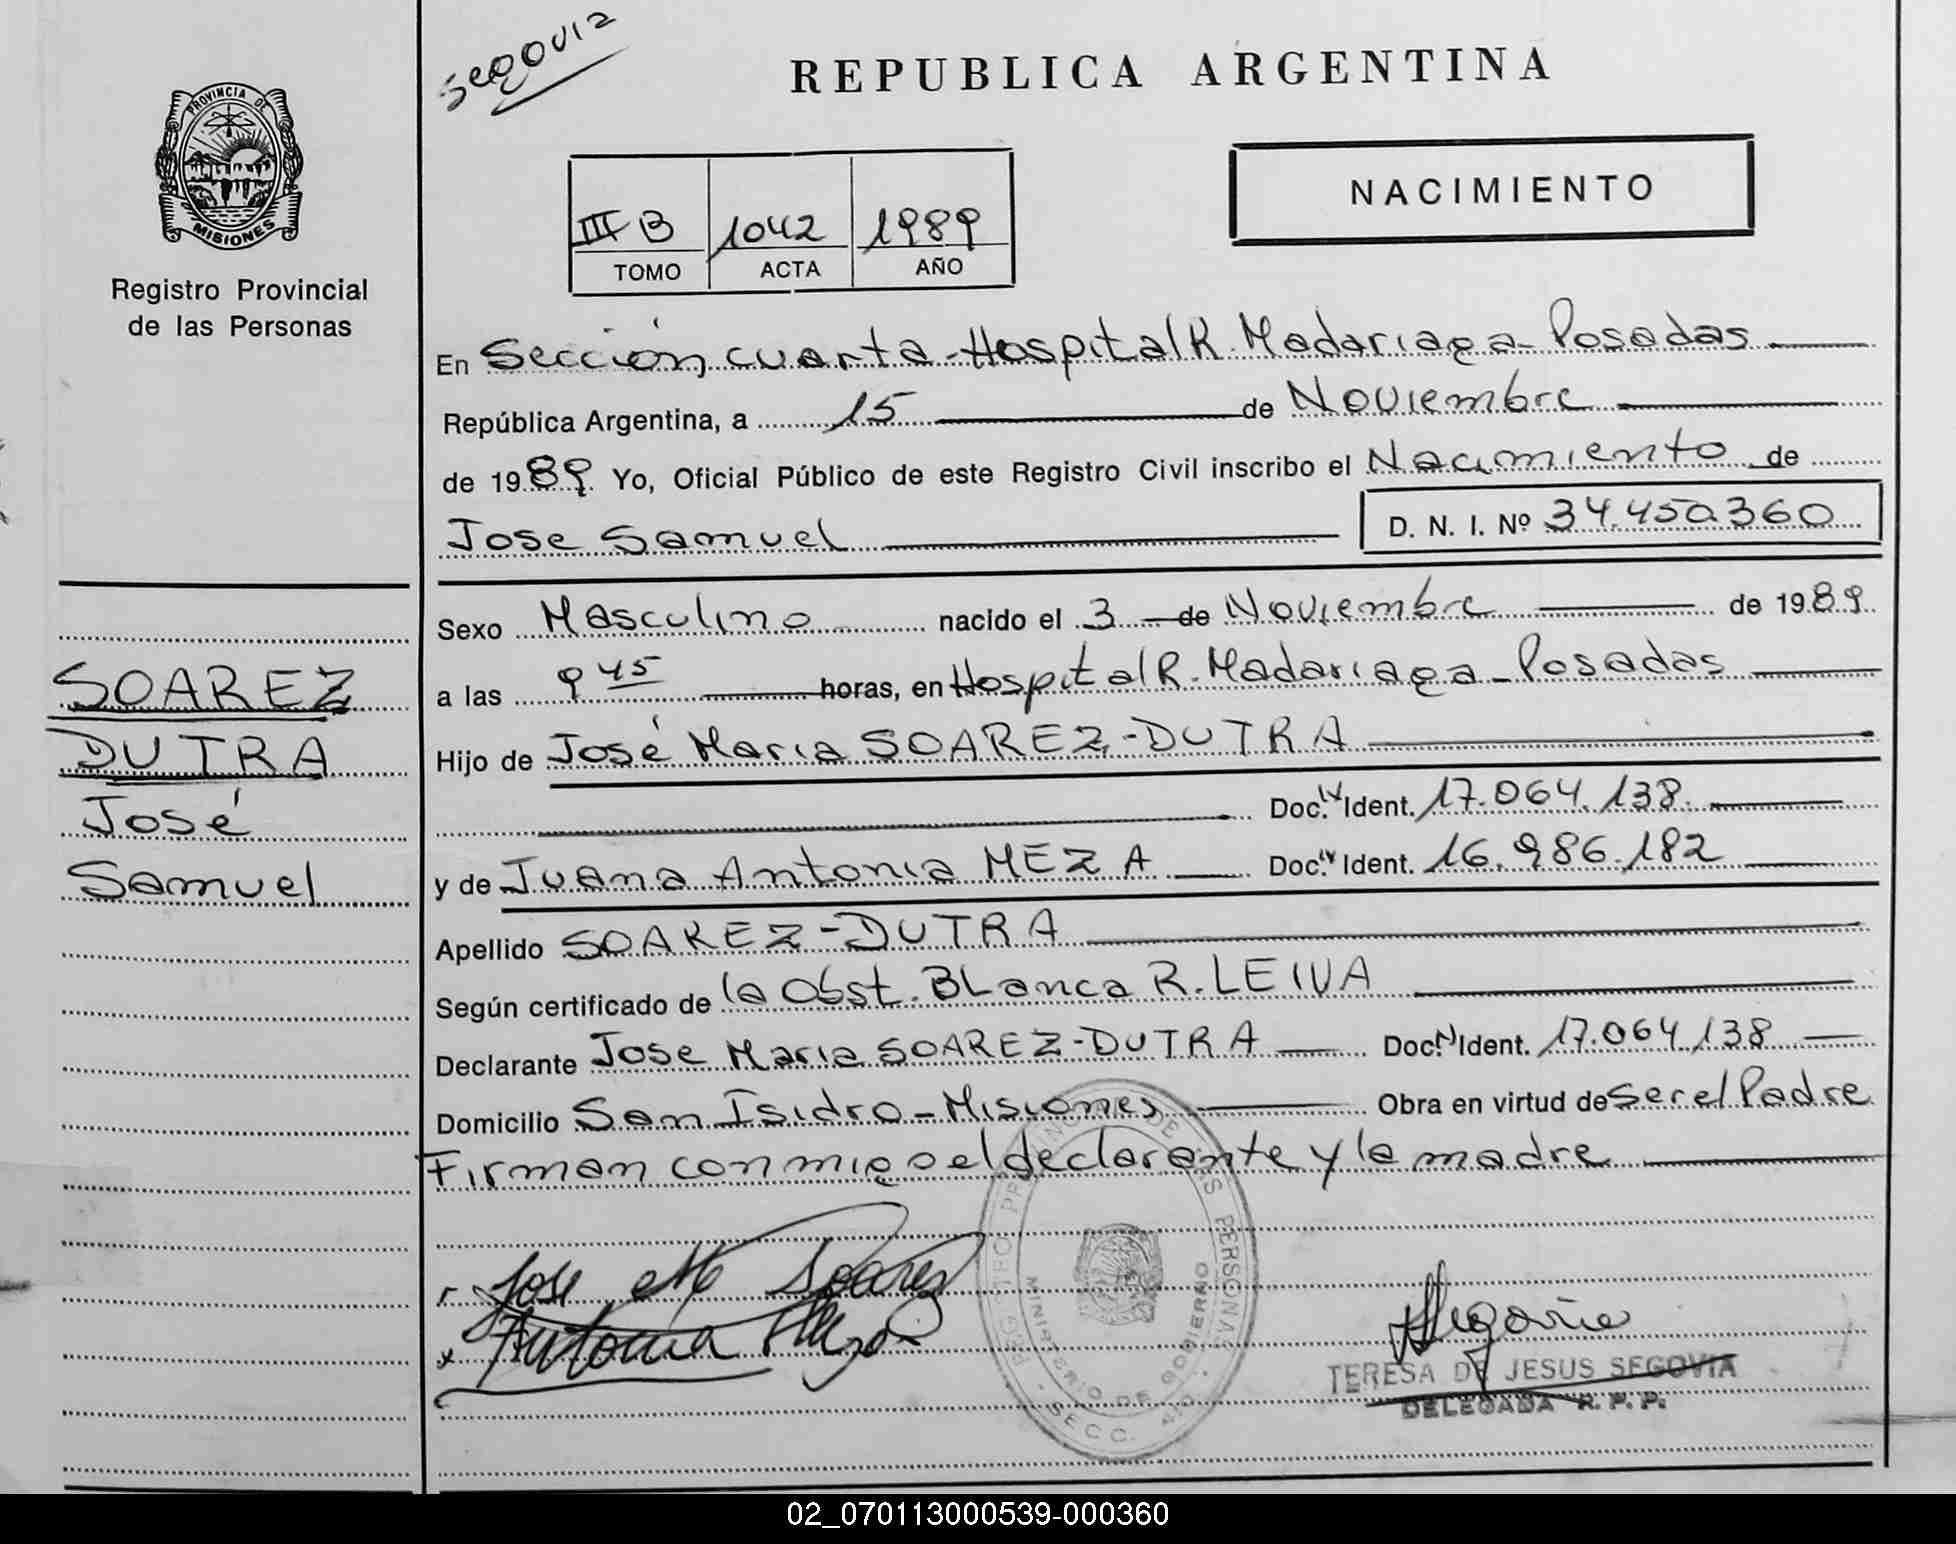 Segovia
REPUBLICA ARGENTINA
PROVINCIA DE
MISIONES
Registro Provincial
de las Personas
NACIMIENTO
III B 1042 1989
TOMO ACTA AÑO
En Sección, cuarta-Hospital R. Madariaga-Posadas
República Argentina, a 15 de Noviembre
de 1989 Yo, Oficial Público de este Registro Civil inscribo el Nacimiento de
Jose Samuel D. N. I. Nº 34.450.360
SOAREZ
DUTRA
José
Samuel
Sexo Masculino nacido el 3 de Noviembre de 1989
a las 9 45 horas, en Hospital R. Madariaga-Posadas
Hijo de José María SOAREZ-DUTRA
Doc. Ident. 17.064.138
y de Juana Antonia MEZA Doc. Ident. 16.986.182
Apellido SOAREZ-DUTRA
Según certificado de la Obst. Blanca R. LEIVA
Declarante Jose Maria SOAREZ-DUTRA Doc. Ident. 17.064.138
Domicilio San Isidro-Misiones Obra en virtud de Ser el Padre
Firman conmigo el declarante y la madre
Jose M Soarez
Antonia Meza
REGISTRO PROVINCIAL DE LAS PERSONAS
MINISTERIO DE GOBIERNO
SECC. 4ta.
Segovia
TERESA DE JESUS SEGOVIA
DELEGADA R. P. P.
02_070113000539-000360